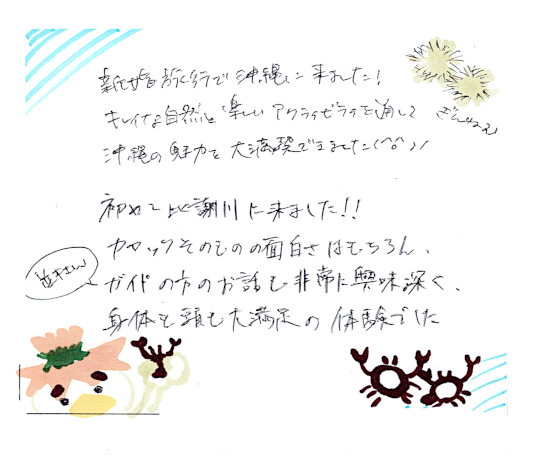 新婚旅行で沖縄に来ました!
キレイな自然と楽しいアクティビティを通して
沖縄の魅力を大満喫できました(^o^)/
初めて比謝川に来ました!!
カヤックそのものの面白さはもちろん、
ガイドの方のお話も非常に興味深く、
身体も頭も大満足の体験でした